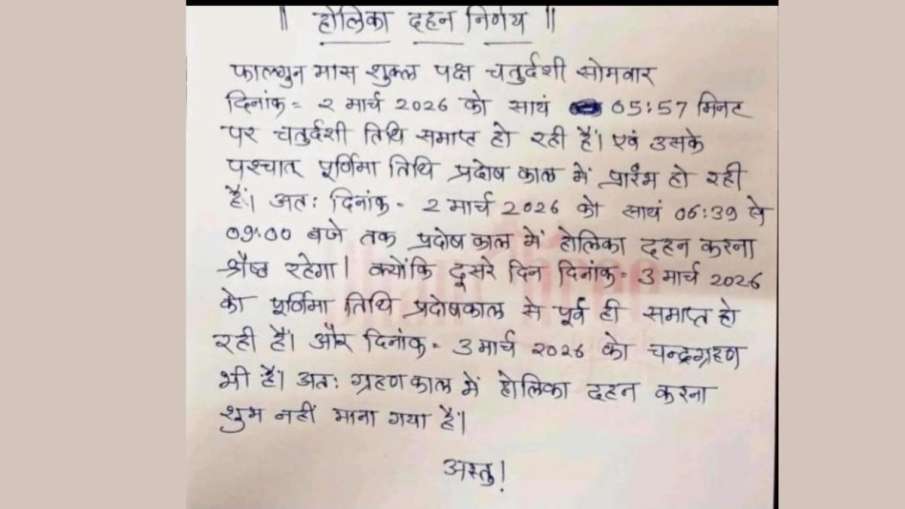 ॥ होलिका दहन निर्णय ॥
फाल्गुन मास शुक्ल पक्ष चतुर्दशी सोमवार
दिनांक= २ मार्च 2026 को सायं 05:57 मिनट
पर चतुर्दशी तिथि समाप्त हो रही हैं। एवं उसके
पश्चात् पूर्णिमा तिथि प्रदोष काल में प्रारंभ हो रही
हैं। अतः दिनांक- 2 मार्च 2026 को सायं 06:39 से
09:00 बजे तक प्रदोष काल में होलिका दहन करना
श्रेष्ठ रहेगा। क्योंकि दूसरे दिन दिनांक= 3 मार्च 2026
को पूर्णिमा तिथि प्रदोषकाल से पूर्व ही समाप्त हो
रही हैं। और दिनांक= 3 मार्च 2026 को चन्द्रग्रहण
भी हैं। अतः ग्रहण काल में होलिका दहन करना
शुभ नहीं माना गया हैं।
अस्तु!